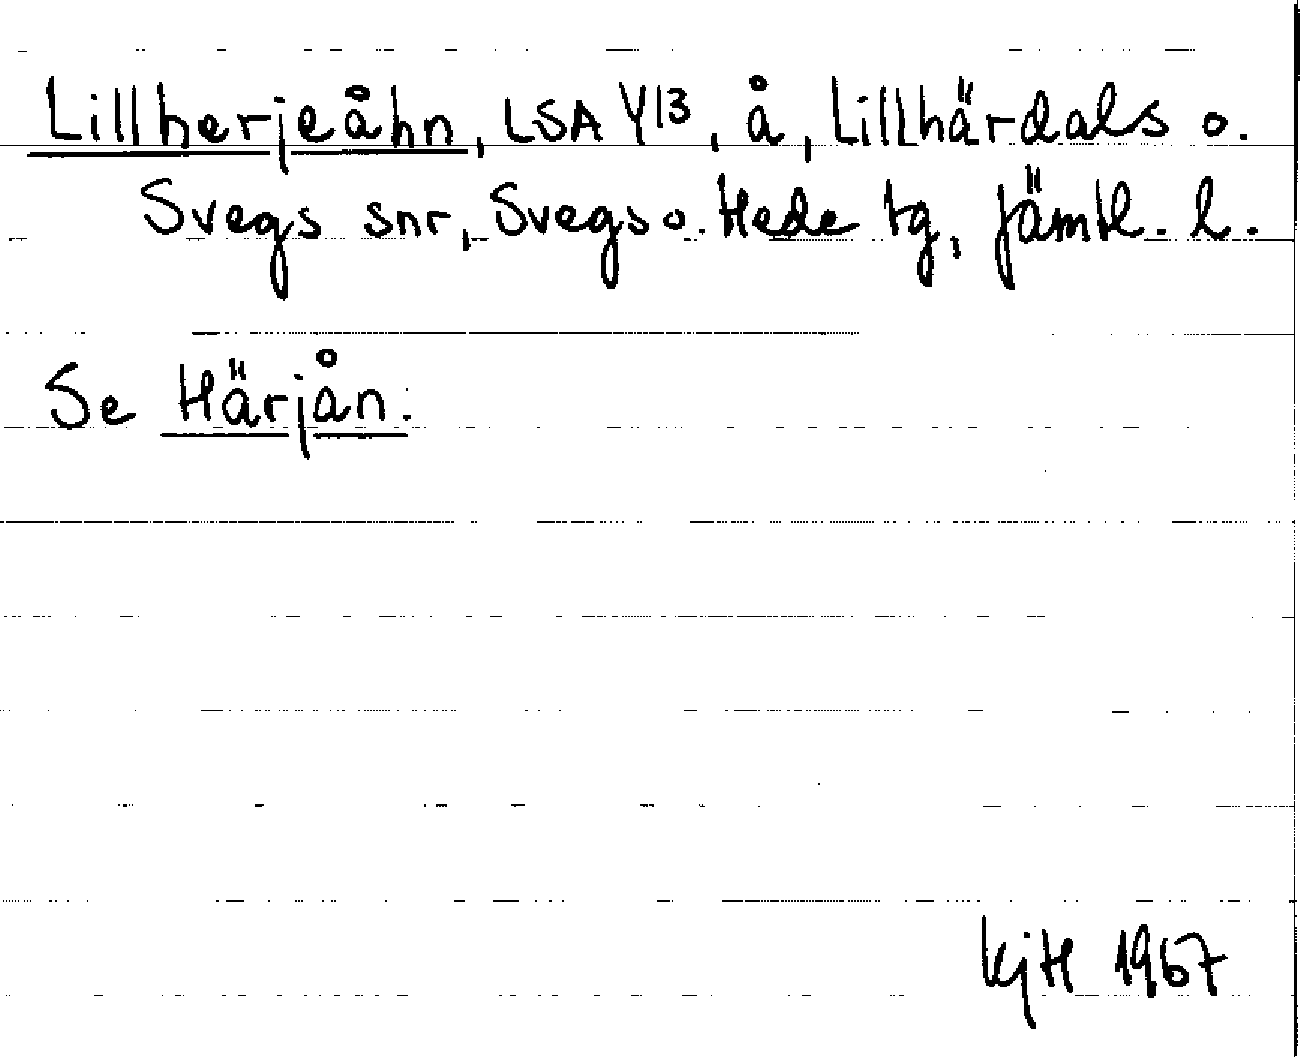 Lillherjeåhn, LSA Y13, å, Lillhärdals o.
Svegs snr, Svegs o. Hede tg, Jämtl. l.
Se Härjån.
KjH 1967